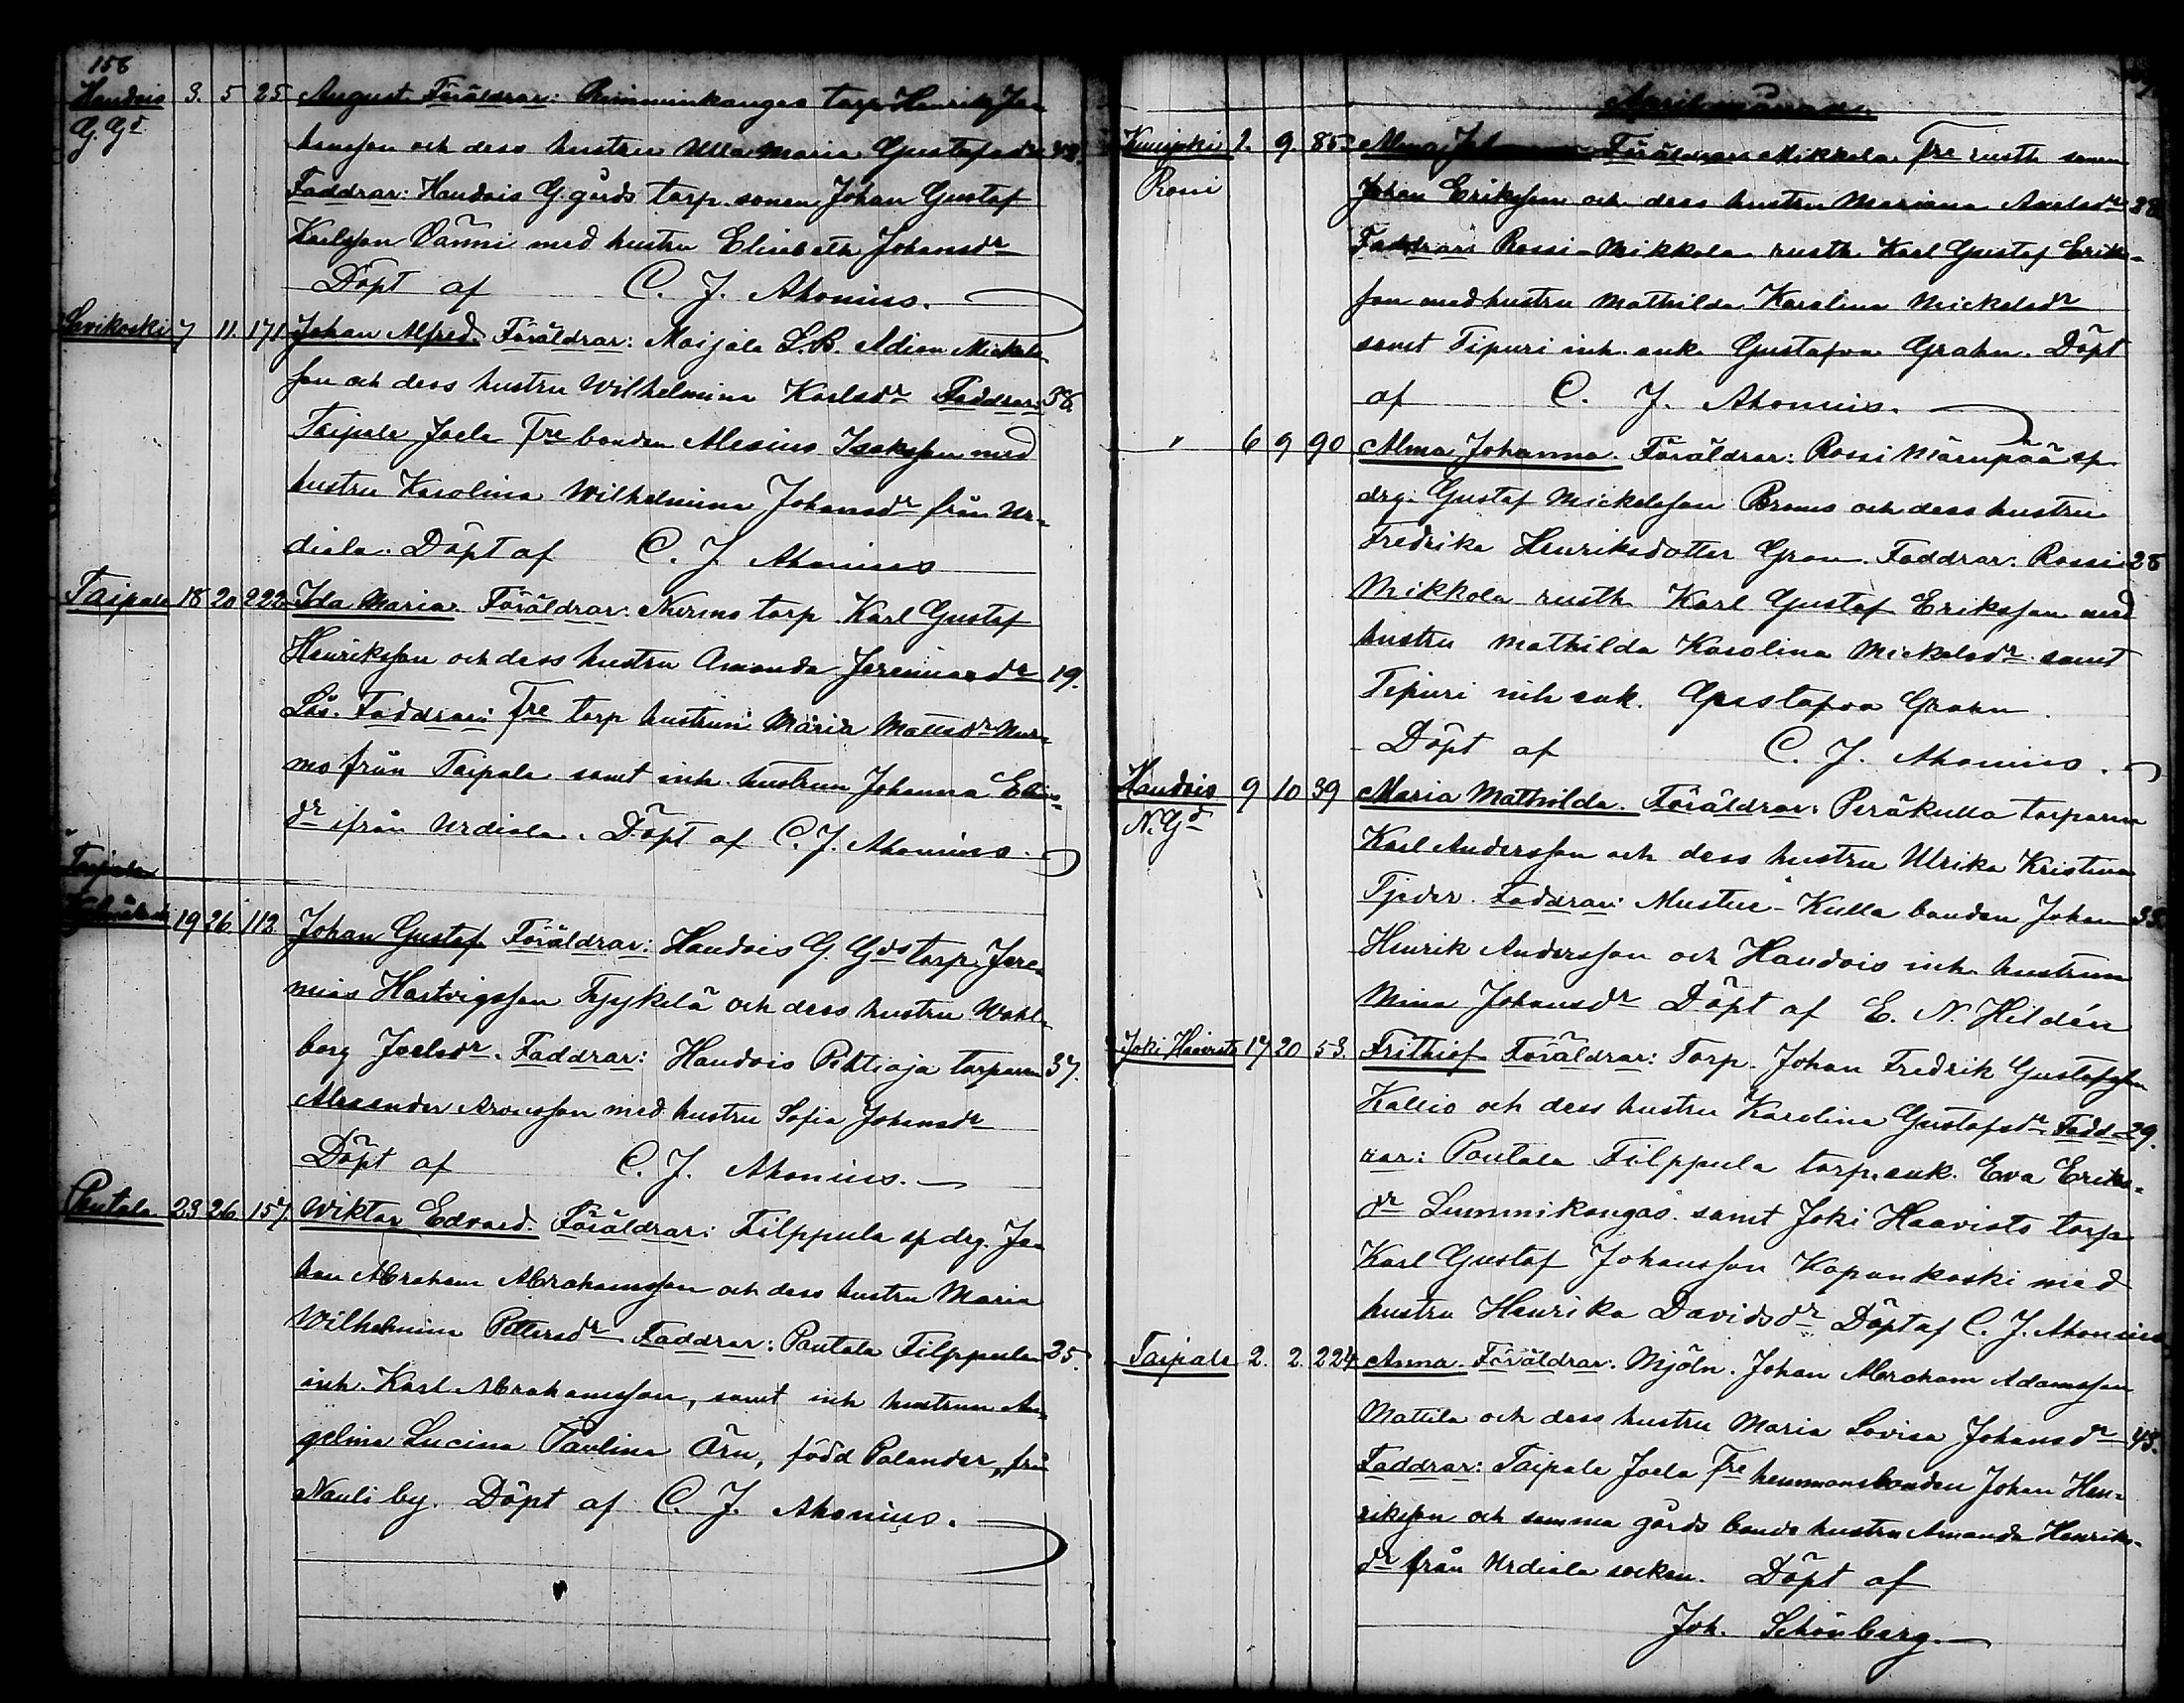 156
Handois 3. 5 25 August Föräldrar: Rimminkangas torp. Henrik Jo-
G. Gd hansson och dess hustru Ulla Maria Gustafsdr 42.
Faddrar: Handois G. gårds torp. sonen Johan Gustaf
Karlsson Vänni med hustru Elisabeth Johansdr
Döpt af C. J. Ahonius.
Savikoski 7 11. 171. Johan Alfred. Föräldrar: Maijala L.B. Adian Mickels-
son och dess hustru Wilhelmina Karlsdr Faddrar: 36.
Taipale Joela fre bonden Alexius Isaksson med
hustru Karolina Wilhelmina Johansdr från Ur-
diala. Döpt af C. J. Ahonius
Taipale 18 20 222 Ida Maria. Föräldrar: Nurmo torp Karl Gustaf
Henriksson och dess hustru Amanda Jeremiasdr 19.
Lös. Faddrar: fre torp hustrun Maria Mattsdr Nur-
mo från Taipale samt inh. hustrun Johanna Elias-
dr ifrån Urdiala. Döpt af C. J. Ahonius.
Taipale
19 26 112 Johan Gustaf Föräldrar: Handois G. Gds torp. Jere-
mias Hartvigsson Tyykilä och dess hustru Wahl-
borg Joelsdr. Faddrar: Handois Pihtiaja torparen 37.
Alexander Aronsson med hustru Sofia Johansdr
Döpt af C. J. Ahonius.
Pautala 23 26 157 Wiktor Edvard. Föräldrar: Filppula sp.drg. Jo-
han Abraham Abrahamsson och dess hustru Maria
Wilhelmina Pettersdr Faddrar: Pautala Filppula 25.
inh. Karl Abrahamsson, samt inh hustrun An-
gelina Lucina Paulina Örn, född Polander, från
Nauli by. Döpt af C. J. Ahonius.
Aprilmånad.
Kuusjoki 2. 9. 85 Alma Föräldrar: Mikkola fre rusth sonen
Rossi Johan Eriksson och dess hustru Mariana Axelsdr 38
Faddrar: Rossi-Mikkola rusth. Karl Gustaf Eriks-
son med hustru Mathilda Karolina Mickelsdr
samt Tipuri inh. enk. Gustafva Grahn. Döpt
af C. J. Ahonius.
" 6 9 90 Alma Johanna. Föräldrar: Rossi Märripää sp.
drg. Gustaf Mickelsson Broms och dess hustru
Fredrika Henriksdotter Gran. Faddrar: Rossi 28
Mikkola rusth. Karl Gustaf Eriksson med
hustru Mathilda Karolina Mickelsdr samt
Tipuri inh enk. Gustafva Grahn.
Döpt af C. J. Ahonius.
Handois 9 10 39 Maria Mathilda. Föräldrar: Peräkulla torparen
N. Gd Karl Andersson och dess hustru Ulrika Kristina
Tjeder. Faddrar: Mustue-Kulla bonden Johan 35.
Henrik Andersson och Handois inh. hustrun
Mina Johansdr Döpt af E. N. Hildén
Joki Haavisto 17 20 53. Frithiof Föräldrar: Torp. Johan Fredrik Gustafsson
Kallio och dess hustru Karolina Gustafsdr. Fadd- 29.
rar: Pautala Filppula torp. enk. Eva Eriks-
dr Lumminkangas samt Joki Haavisto torp.
Karl Gustaf Johansson Kapankoski med
hustru Henrika Davidsdr Döpt af C. J. Ahonius
Taipale 2. 2. 224 Anna. Föräldrar: Mjöln. Johan Abraham Adamsson
Mattila och dess hustru Maria Lovisa Johansdr 43.
Faddrar: Taipale Joela fre hemmansbonden Johan Hen-
riksson och samma gårds bonde hustru Amanda Henriks-
dr från Urdiala socken. Döpt af
Joh. Schönberg.